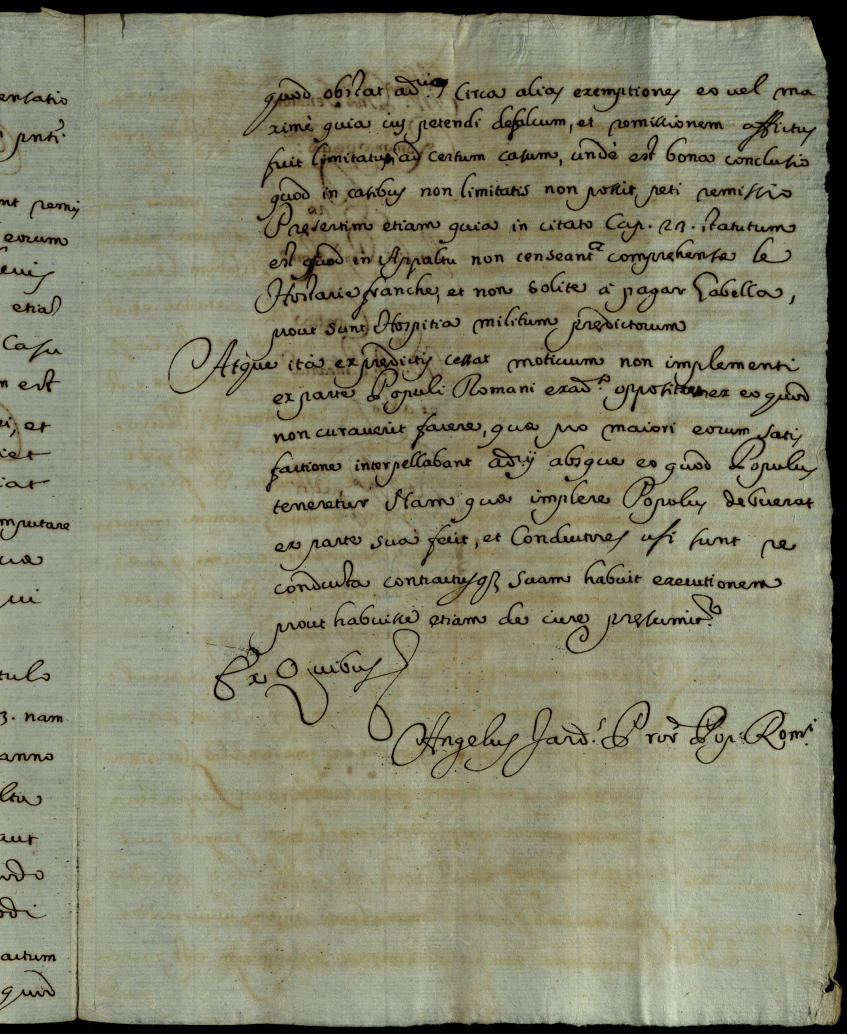 ensatio
pnti
nt remi
eorum
etiam
Casu
m est
et
iet
iat
mputare
tulo
3. nam
anno
aut
actum
quod
quod obstat adriis Circa alias exemptiones eo vel ma
ximè quia ius petendi defalcum, et remissionem affictus
fuit limitatum ad certum casum, undè est bona conclusio
quod in casibus non limitatis non possit peti remissio
Presertim etiam quia in citato Cap. 23. statutum
est quod in Appaltu non censeantr comprehense le
Hostarie franche, et non solite à pagar Gabella,
prout sunt Hospitia militum predictorum
Atque ità ex predictis cessat motivum non implementi
ex parte Populi Romani ex ado oppositum ex eo quod
non curaverit facere, quæ pro maiori eorum satis
factione interpellabant adrij absque eo quod Populus
teneretur Nam quæ implere Populus debuerat
ex parte sua fecit, et Conductores usi sunt re
conducta contractusq3 suam habuit executionem
prout habuisse etiam de iure presumitr
Ex Quibus
Angelus Jard.s Pror Pop. Rom.i